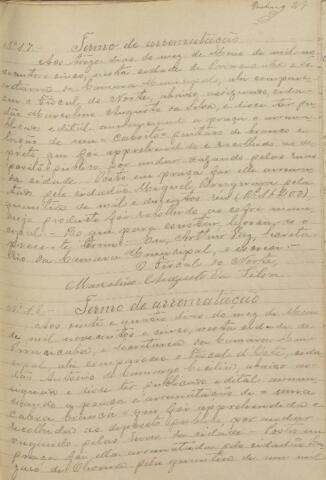 Nº 17. Termo de arrematação
Aos treze dias do mez de Maio de mil no-
vecentos e cinco, nesta cidade de Sorocaba e Se-
cretaria da Camara Municipal, ahi compare-
ceu o Fiscal do Norte, abaixo assignado, cida-
dão Marcolino Augusto da Silva, e disse ter pu-
blicado edital annunciando a praça e arrema-
tação de um cabrito pintado de branco e
preto, que foi apprehendido e recolhido ao de-
posito publico por andar vagando pelas ruas
da cidade. Posto em praça foi elle arrema-
tado pelo cidadão Miguel pela
quantia de mil e duzentos reis (Rs. 1$200),
cujo producto foi recolhido ao cofre muni-
cipal. Do que para constar lavrou-se o
presente termo. Eu, Secreta-
rio da Camara Municipal, o escrevi.
O Fiscal do Norte,
Marcolino Augusto da Silva
Nº 18. Termo de arrematação
Aos vinte e quatro dias do mez de Maio
de mil novecentos e cinco, nesta cidade de
Sorocaba, e Secretaria da Camara Muni-
cipal, ahi compareceu o Fiscal d'Oeste, cida-
dão Antonio de Camargo abaixo as-
signado e disse ter publicado edital annun-
ciando a praça e arrematação de uma
cabra que foi apprehendida e
recolhida ao deposito publico, por andar va-
gando pelas ruas da cidade. Posta em
praça foi ella arrematada pelo cidadão
de Oliveira pela quantia de um mil